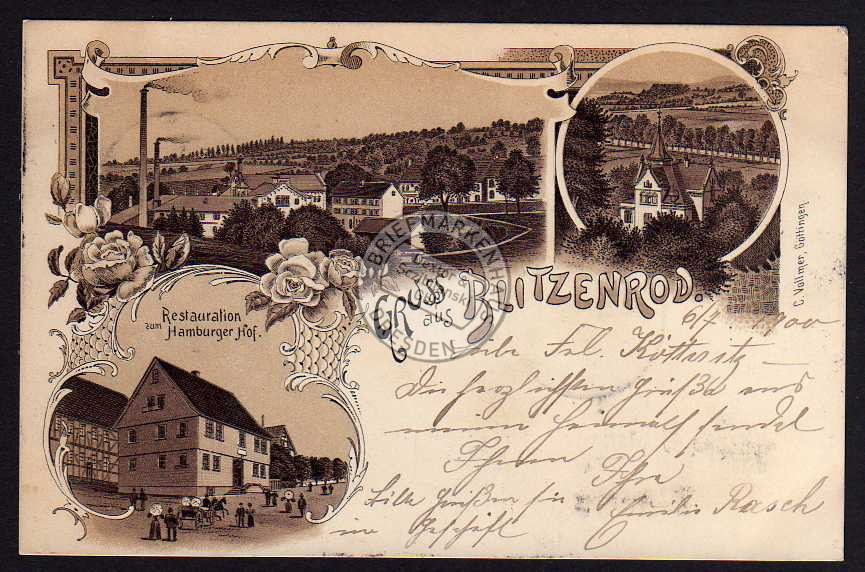 Restauration
zum Hamburger Hof.
Gruss aus Blitzenrod.
C. Vollmer, Göttingen
BRIEFMARKENHAUS
DRESDEN
6/7 1900
Liebe Frl. Köttwitz
Die herzlichsten Grüße aus
meiner Heimath sendet
Ihnen Ihre
Emilie Rasch
Bitte grüßen Sie
im Geschäft